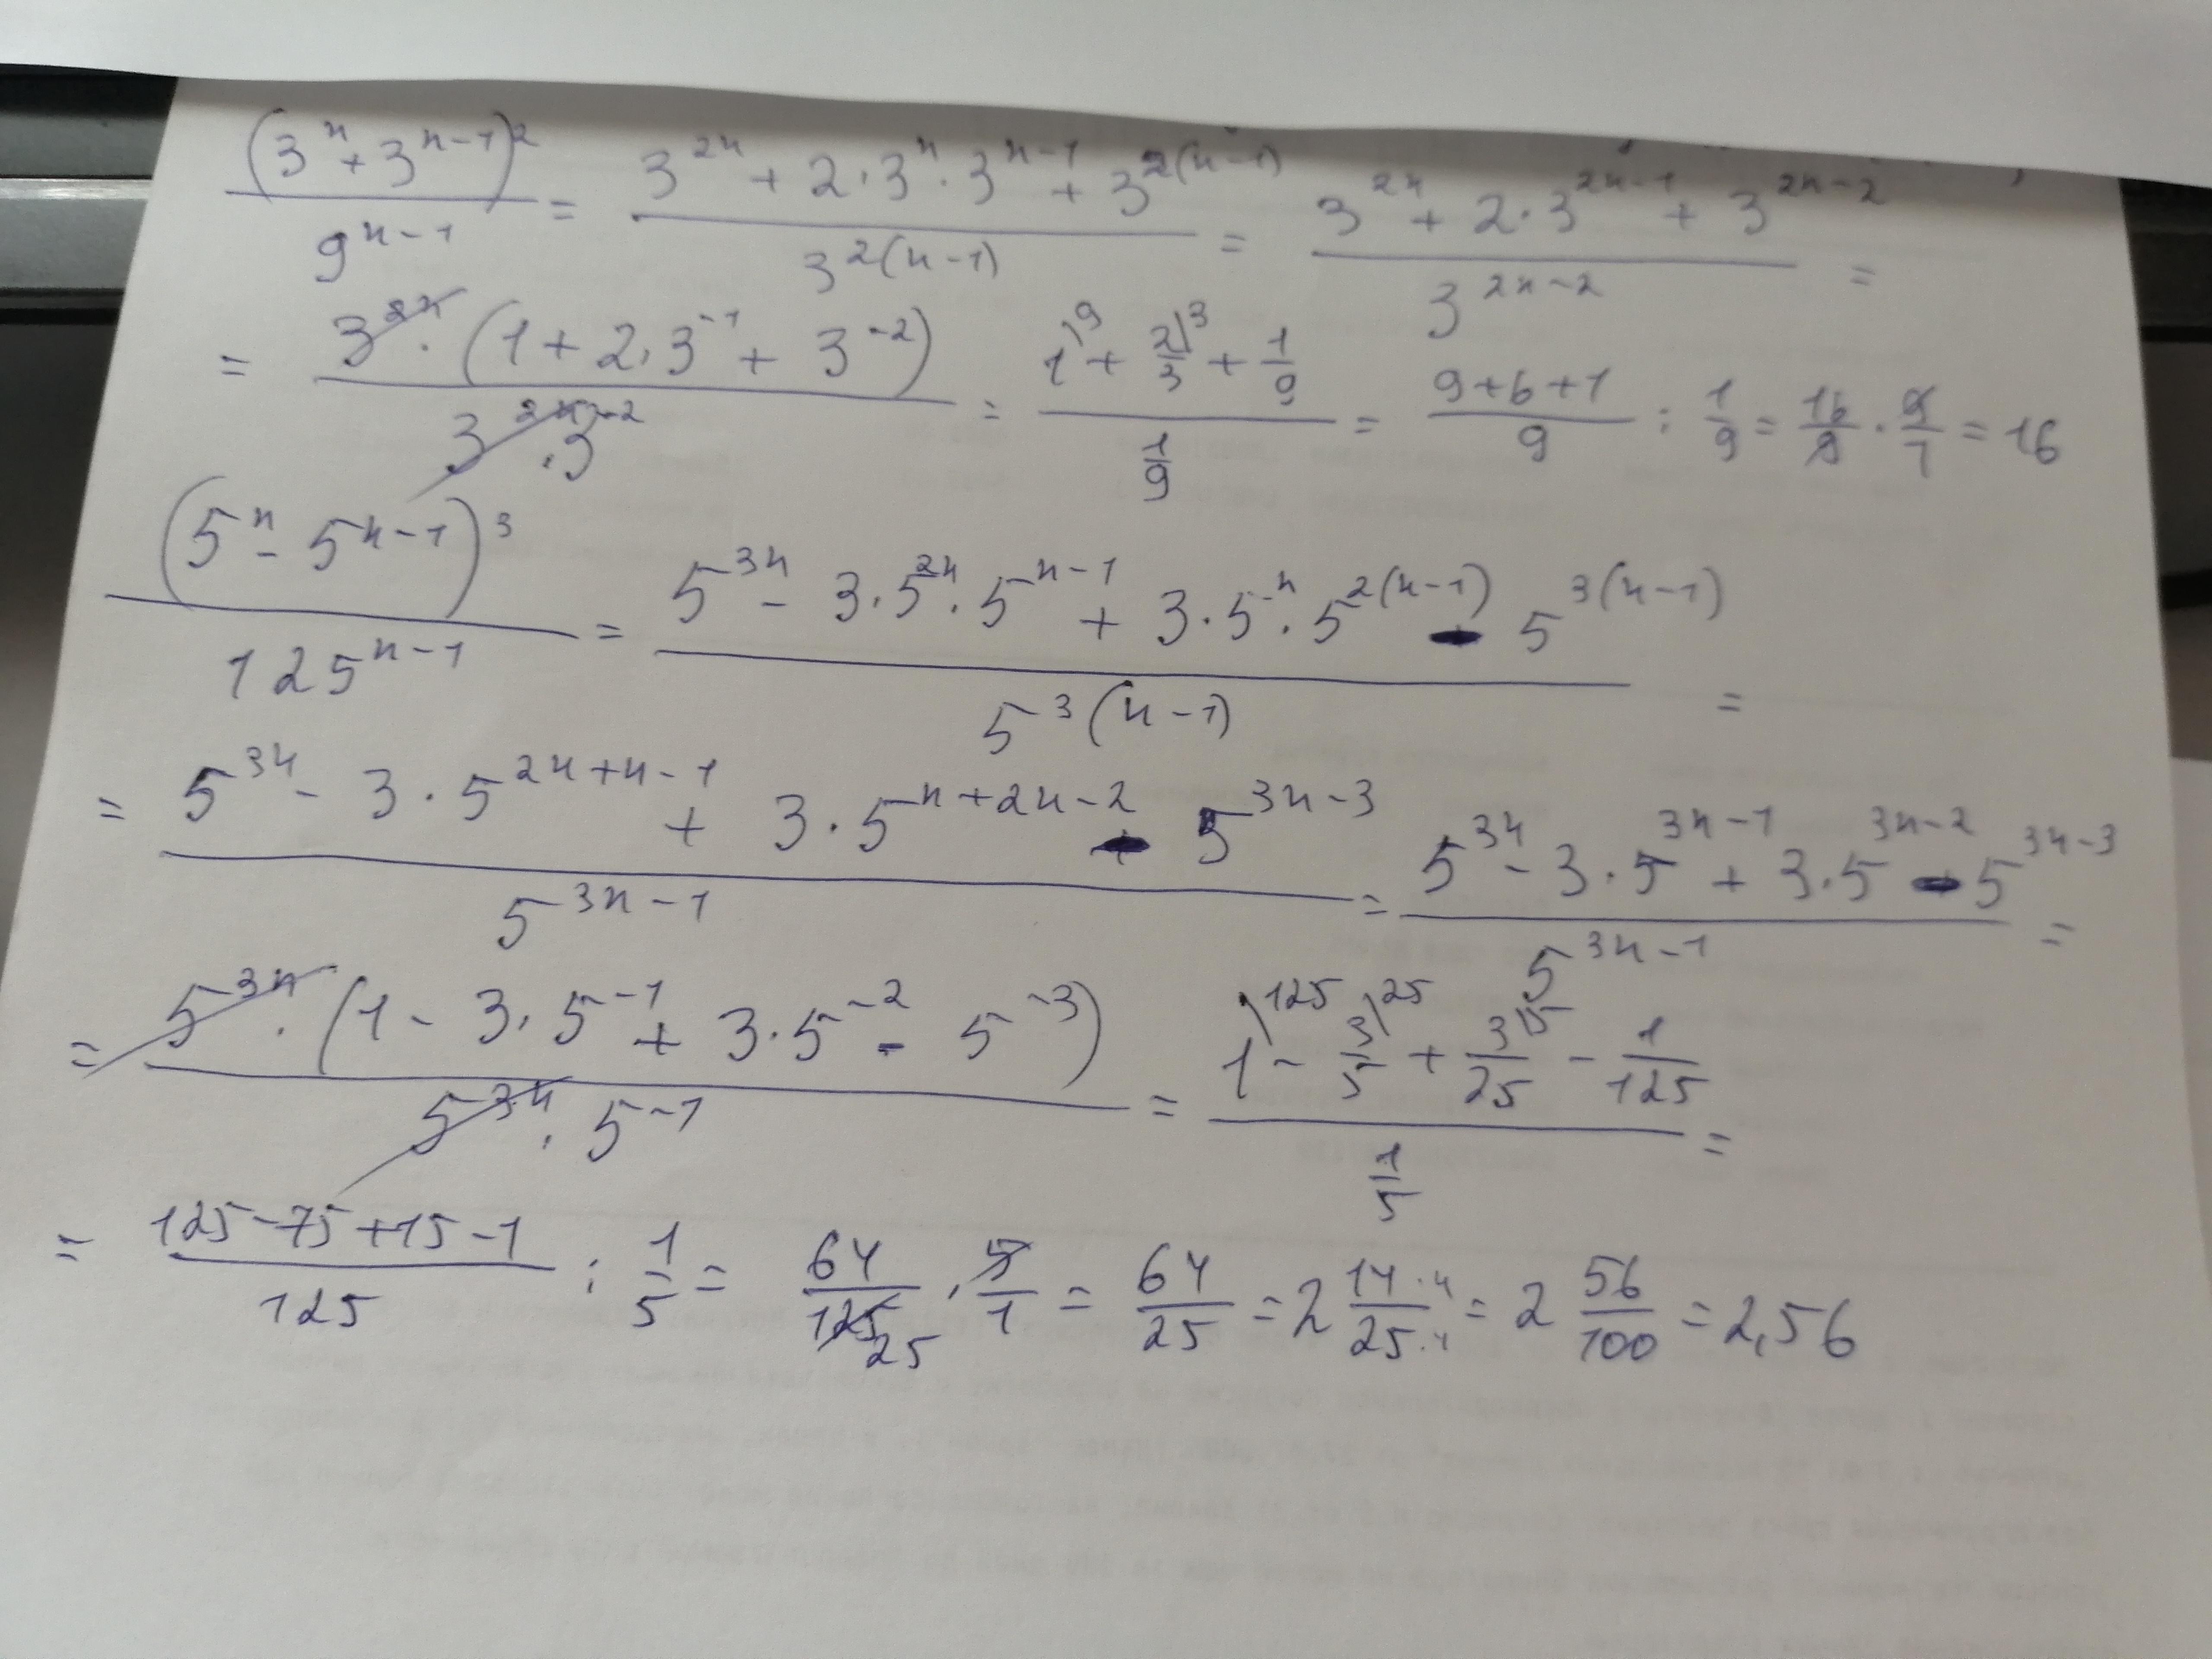 (3^n + 3^(n-1))^2 / 9^(n-1) = (3^(2n) + 2·3^n·3^(n-1) + 3^(2(n-1))) / 3^(2(n-1)) = (3^(2n) + 2·3^(2n-1) + 3^(2n-2)) / 3^(2n-2) =
= 3^(2n)·(1 + 2·3^(-1) + 3^(-2)) / (3^(2n)·3^(-2)) = (1\9 + 2/3\3 + 1/9) / (1/9) = (9+6+1)/9 : 1/9 = 16/9 · 9/1 = 16
(5^n - 5^(n-1))^3 / 125^(n-1) = (5^(3n) - 3·5^(2n)·5^(n-1) + 3·5^n·5^(2(n-1)) - 5^(3(n-1))) / 5^(3(n-1)) =
= (5^(3n) - 3·5^(2n+n-1) + 3·5^(n+2n-2) - 5^(3n-3)) / 5^(3n-1) = (5^(3n) - 3·5^(3n-1) + 3·5^(3n-2) - 5^(3n-3)) / 5^(3n-1) =
= 5^(3n)·(1 - 3·5^(-1) + 3·5^(-2) - 5^(-3)) / (5^(3n)·5^(-1)) = (1\125 - 3/5\25 + 3/25\5 - 1/125) / (1/5) =
= (125-75+15-1)/125 : 1/5 = 64/125 25 · 5/1 = 64/25 = 2 14·4/25·4 = 2 56/100 = 2,56